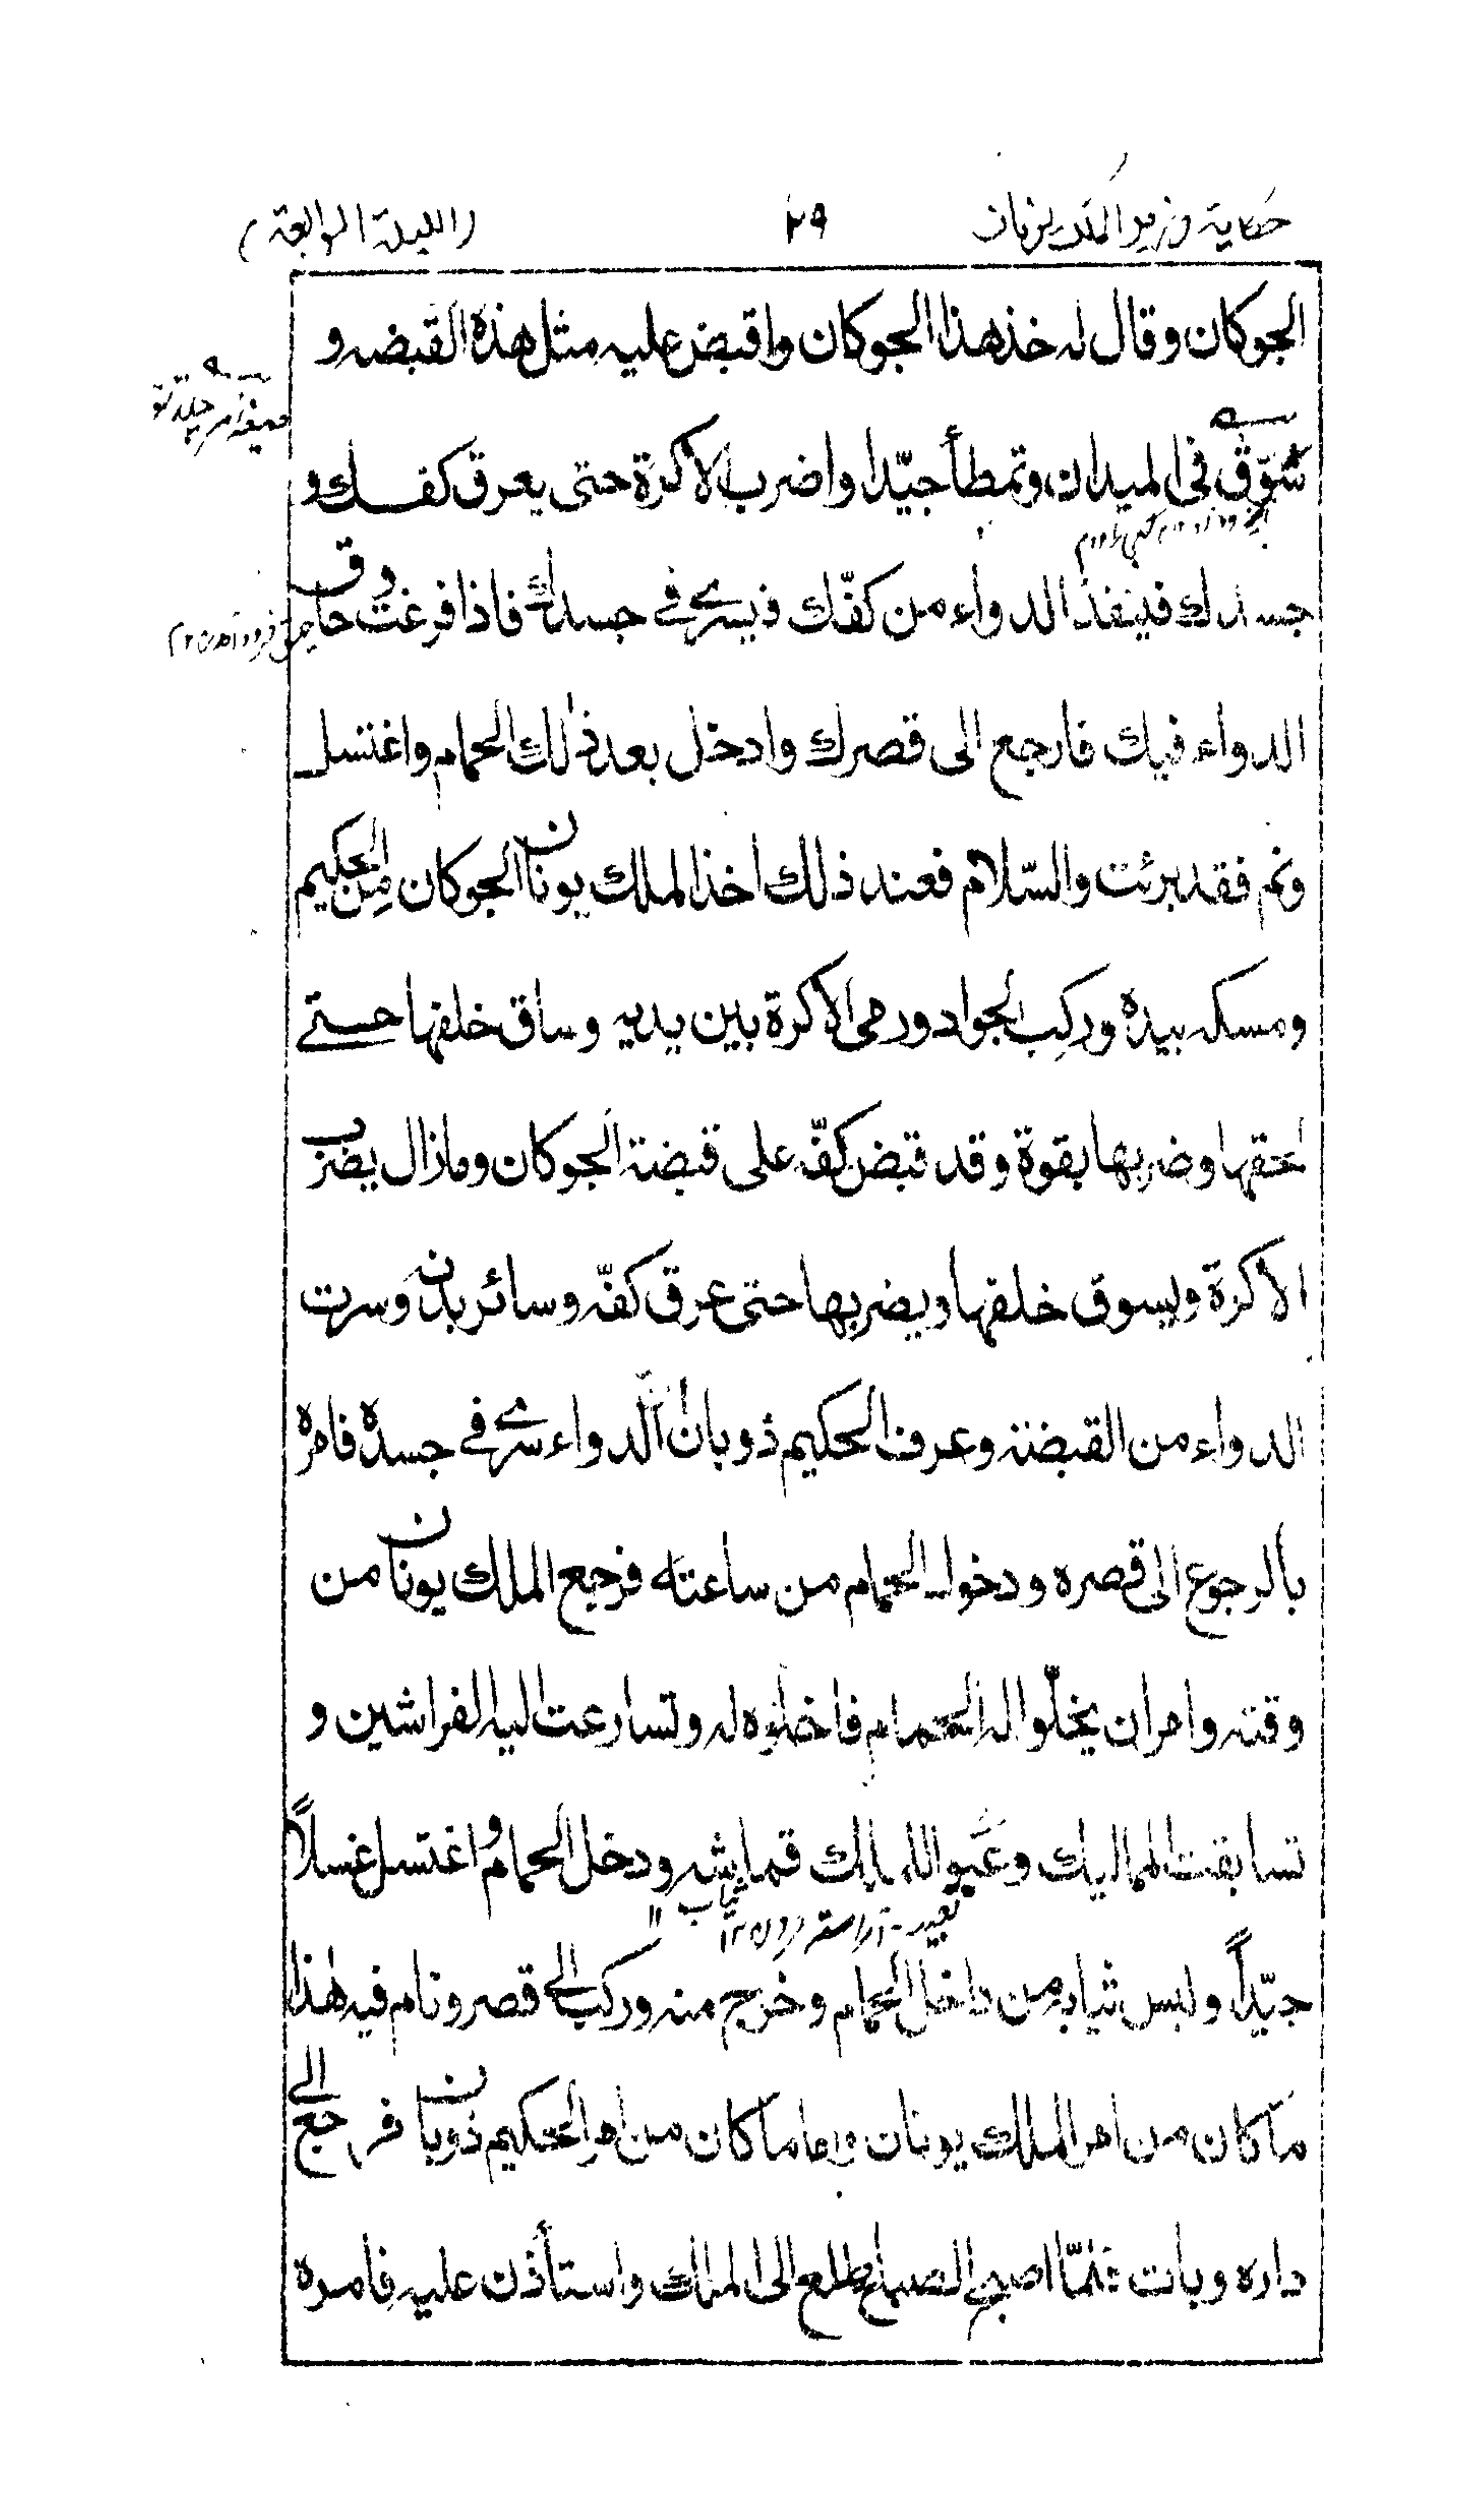 حكاية وزير الملك يونان ٢٩ (الليلة الرابعة)
الجوكان وقال له خذ هذا الجوكان واقبض عليه مثل هذه القبضه و
سوق في الميدان وتمطأ جيّدا واضرب الاكرة حتى يعرق كفك و
جسدك فينفذ الدواء من كفّك فيسرے في جسدك فاذا فرغت وحاق
الدواء فيك فارجع الى قصرك وادخل بعد ذلك الحمام واغتسل
ونم فقد برئت والسّلام فعند ذلك اخذ الملك يونان الجوكان من الحكيم
ومسكه بيده وركب الجواد ورمى الاكرة بين يديه وساق خلفها حتے
لحقها وضربها بقوة وقد قبض كفّه على قبضة الجوكان ومازال يضرب
الاكرة ويسوق خلفها ويضربها حتى عرق كفّه وسائر بدنه وسرت
الدواء من القبضة وعرف الحكيم ذوبان ان الدواء سرے في جسده فامره
بالرجوع الى قصره ودخول الحمام من ساعته فرجع الملك يونان من
وقته وامر ان يخلّوا له الحمام فاخلوه له وتسارعت اليه الفراشين و
تسابقت المماليك وعبّوا للملك قماشه ودخل الحمام واغتسل غسلاً
جيّداً ولبس ثيابه من داخل الحمام وخرج منه وركب الى قصره ونام فيه هذا
ما كان من امر الملك يونان واما ما كان من امر الحكيم ذوبان فرجع الى
داره وبات فلمّا اصبح الصباح طلع الى الملك واستأذن عليه فامره